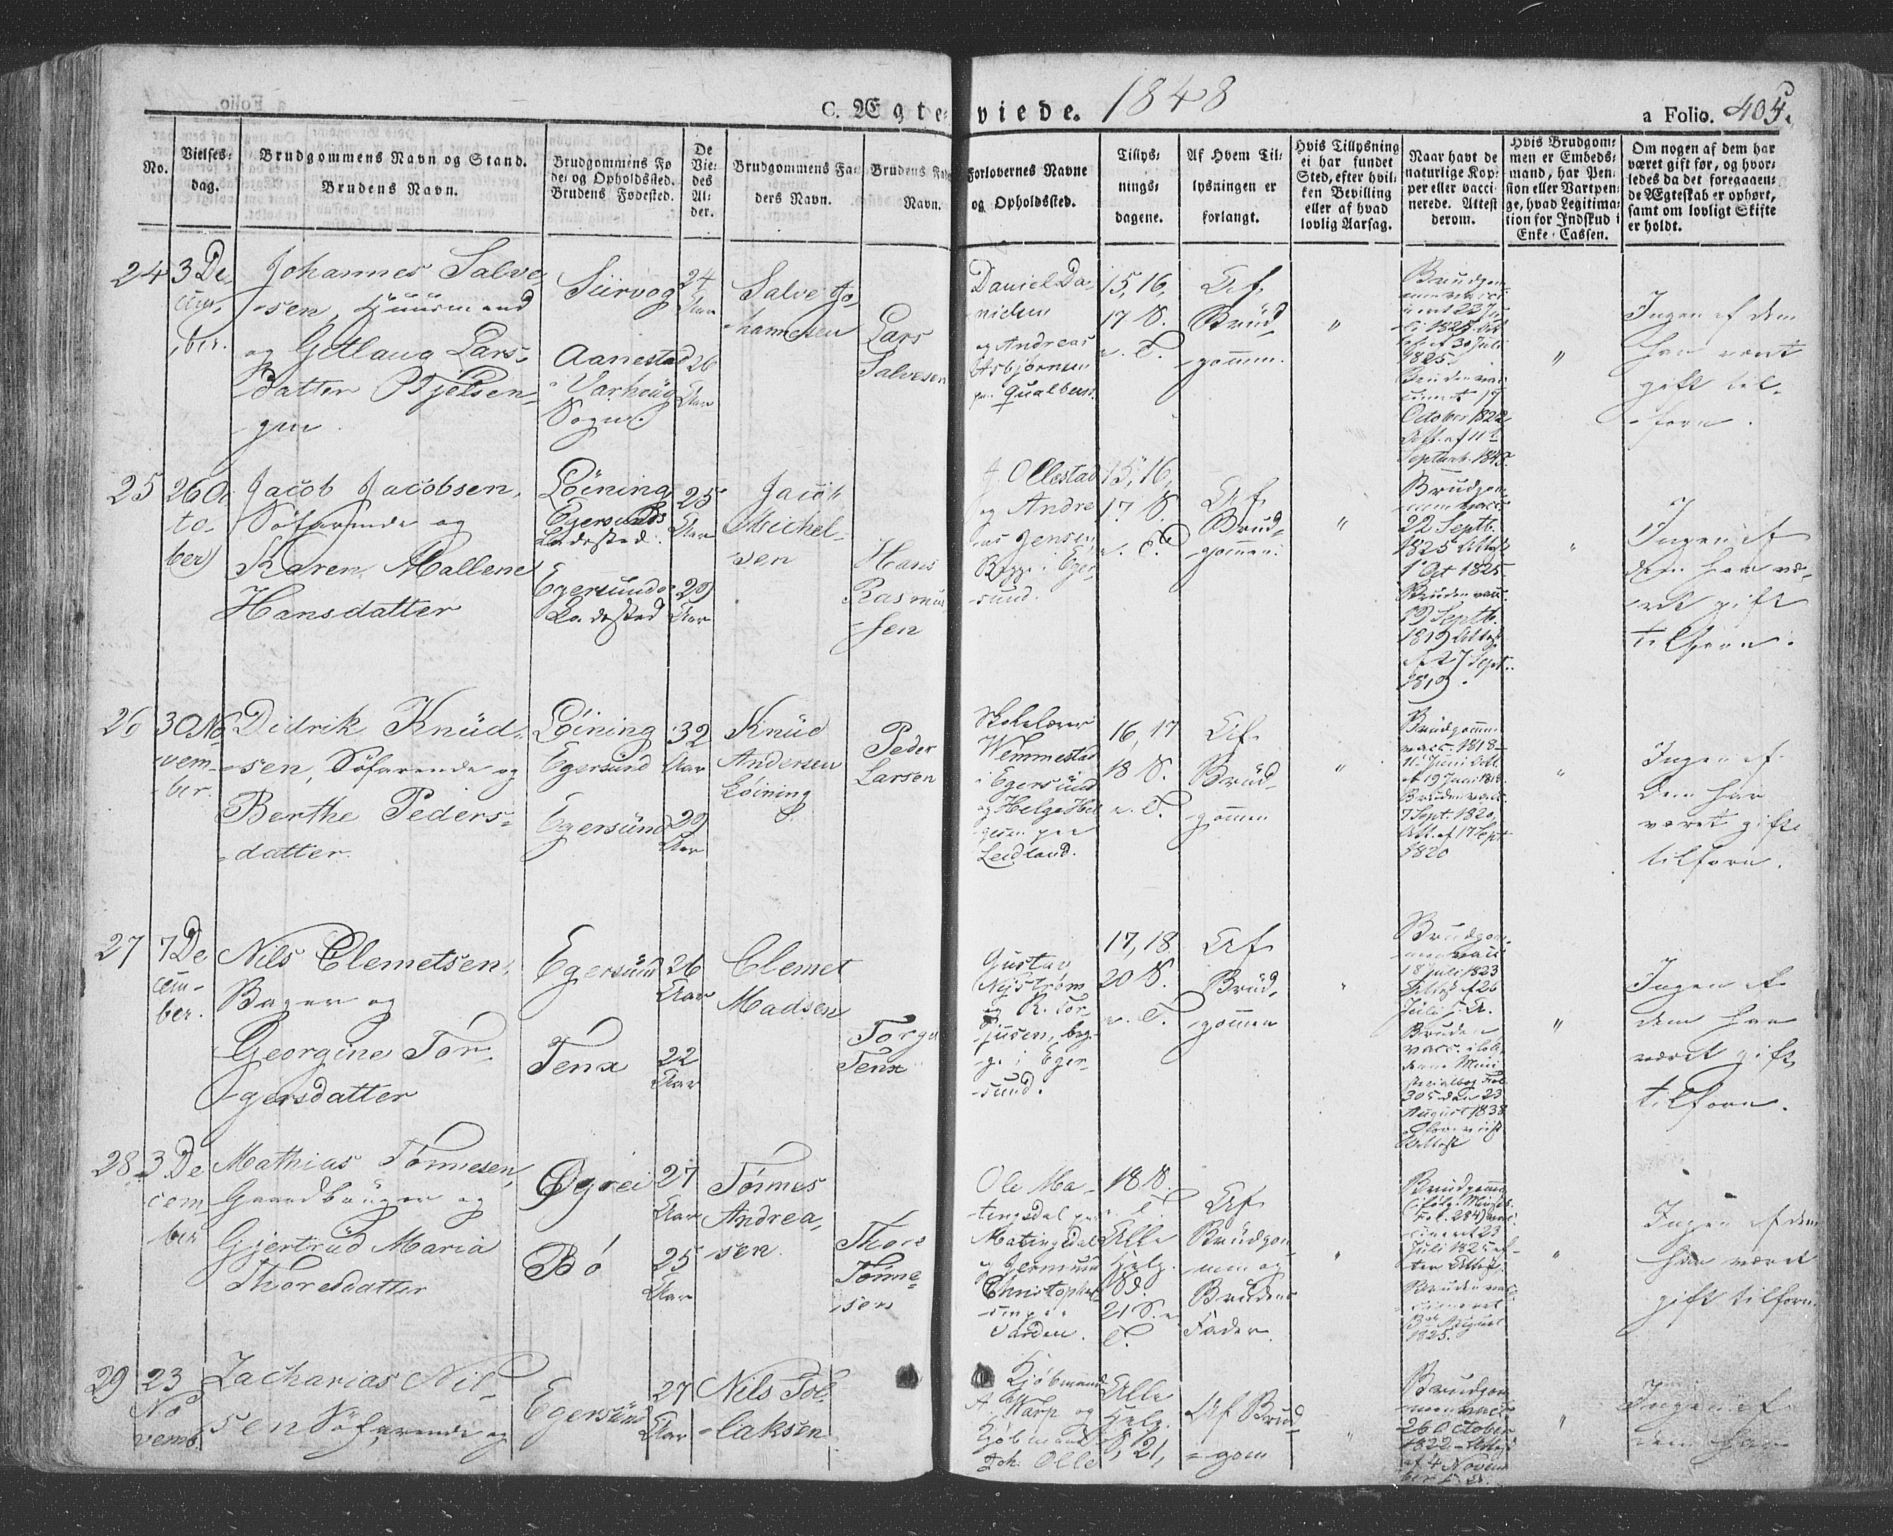 C. Ægte- viede. 1848
a Folio. 405.
No.
Vielses-
dag.
Brudgommens Navn og Stand.
Brudens Navn.
Brudgommens Fø
de- og Opholdssted.
Brudens Fødested.
De
Vie-
des
Al-
der.
Brudgommens Fa-
ders Navn.
Brudens Fa
Navn.
Forlovernes Navne
og Opholdssted.
Tillys-
nings-
dagene.
Af Hvem Til-
lysningen er
forlangt.
Hvis Tillysning
ei har fundet
Sted, efter hvil-
ken Bevilling
eller af hvad
lovlig Aarsag.
Naar havt de
naturlige Kop-
per eller vacci-
nerede. Attest
derom.
Hvis Brudgom-
men er Embeds-
mand, har Pen-
sion eller Vartpen-
ge, hvad Legitima-
tion for Indskud i
Enke-Cassen.
Om nogen af dem har
været gift før, og hvor-
ledes da det foregaaen-
de Ægteskab er ophørt,
samt om lovligt Skifte
er holdt.
24
3 De-
cem-
ber.
Johannes Salve-
sen, Huusmand
og Gitlaug Lars-
datter
Siirvog
Aanestad
Varhoug
Sogn.
24
Aar
26
Aar
Salve Jo-
hannesen
Lars
Salvesen
Daniel Da-
nielsen
og Andreas
Asbjørnsen
15, 16,
17 S.
e. T.
Af
Brud-
gomm.
"
Brudgom-
1825
Bruden vac-
October 1822
"
Ingen af dem
har vært
gift til-
forn.
25
26 Oc
to-
ber
Jacob Jacobsen,
Söfarende og
Karen Mallene
Hansdatter
Löining
Egersunds
Ladested.
Egersunds
Ladested
25
Aar
29
Aar
Jacob
Michel-
sen
Hans
Rasmus
sen
J. Ollestad
og Andre
as Jensen
Begge i Eger-
sund.
15, 16,
17. S.
e. T.
Af
Brud-
gommen.
"
Brudgom-
22 Septb.
1825 Attest
1 Oct 1825
Bruden vacc.
19 Septb.
1819 Attest
af 27 Sept.
1819.
"
Ingen af
dem har væ-
ret gift
tilforn.
26
30 No
vem-
ber.
Didrik Knüd-
sen, Söfarende og
Berthe Peders-
datter.
Löining
Egersund
Egersünd
32
Aar
29
Aar
Knüd
Andersen
Löining
Peder
Larsen
Skolelærer
Wemmestad
i Egersund
og Helge Hel
gesen paa
Leidland.
16, 17
18 S.
e. T.
Af
Brüd-
gommen
"
Brudgomm.
vacc. 1818
11 Juni Att.
af 19 Juni 1818
Bruden vacc.
7 Sept. 1820,
Att. af 17 Sept
1820
"
Ingen af
dem har
været gift
tilforn.
27
7 De
cem-
ber.
Nils Clemetsen,
Bager og
Georgine Tor-
gersdatter
Egersünd
Tenx
26
Aar
22
Aar
Clemet
Madsen
Torger
Tenx
Gustav
Nyström
og R. Tor-
jusen, beg-
ge i Eger-
sund.
17, 18
20 S.
e. T.
Af
Brüd-
gommen
"
Brudgom-
men vacc.
18 Juli 1823
Attest af 26
Juli s. A.
Bruden
vacc.
305 den 23
August 1838
Attest
"
Ingen af
dem har
været gift
tilforn.
28
3 De
cem
ber
Mathias Tönnesen,
Gaardbruger og
Gjertrüd Maria
Thoresdatter
Øgrei
Bö
27
Aar
25
Aar
Tönnes
Andrea-
sen.
Thore
Tönne-
sen
Ole Ma-
tingsdal paa
Matingsdal
og Germund
Christopher
sen paa
Varden.
18 S.
e. T.
Alle
Helg.
21 S. e.
T.
Af
Brudgom-
men og
Brudens
Fader.
"
Brudgomm.
Fol. 284
cineret 23
Juli 1825 ef-
ter Attest
Bruden vac-
cineret
August
1825.
"
Ingen af dem
har været
gift tilforn.
29
23
No
vemb.
Zacharias Nil-
sen Söfarende og
Egersünd
27
Aar
Nils Tol
laksen
Kjöbmand
A. Warp og
Kjöbmand
Joh. Olle
Alle
Helg.
S, 21,
Af Brud-
gom
"
Brudgom-
men vacc.
26 October
1822 Attest
af 4 Novem
ber s. A.
"
Ingen af
dem har